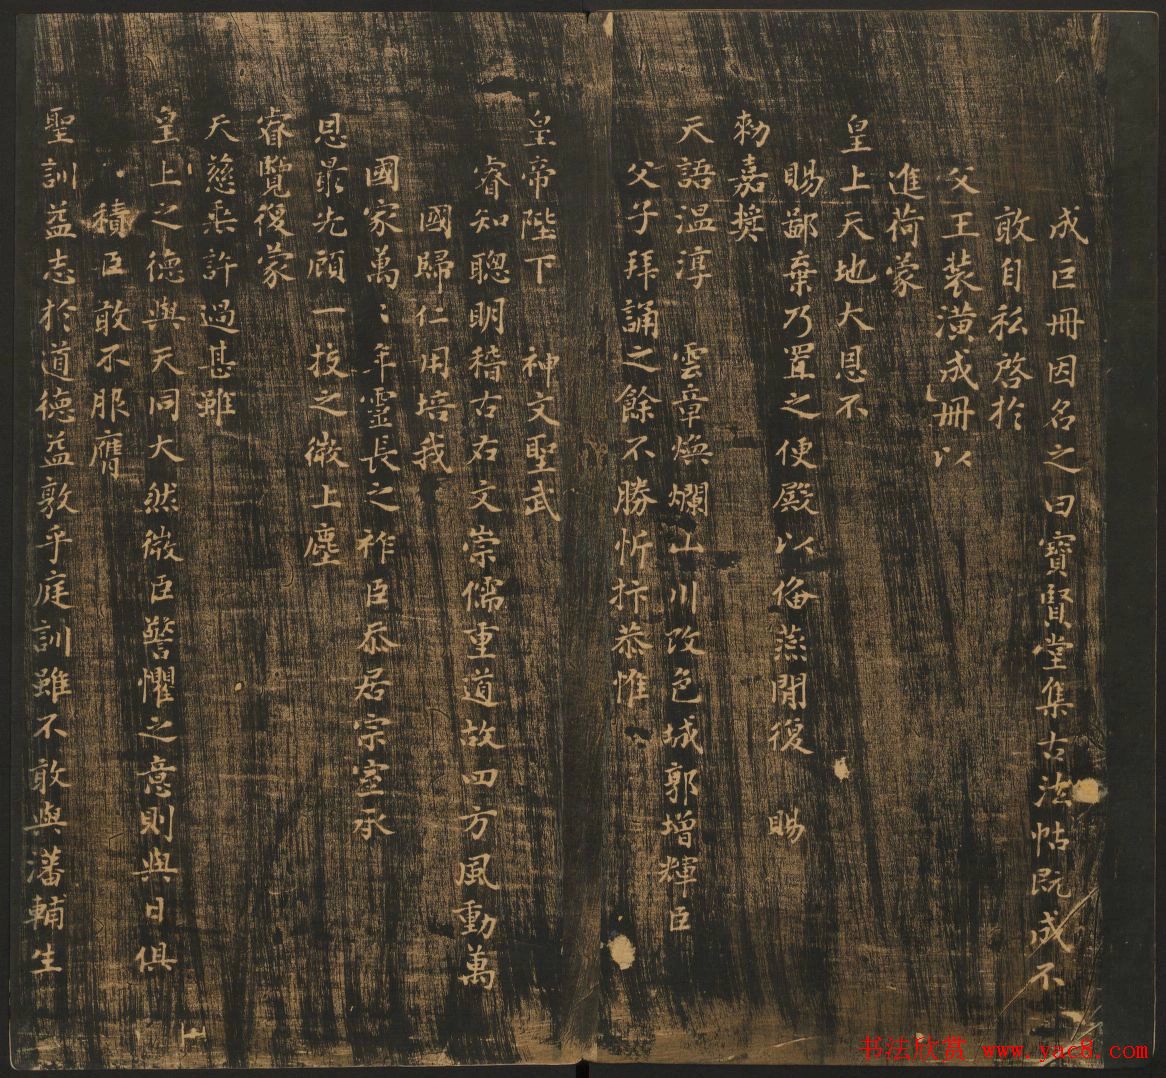 成巨冊因名之曰寶賢堂集古法帖既成不
敢自私啓於
父王裝潢成冊以
進荷蒙
皇上天地大恩不
賜鄙棄乃置之便殿以俻燕閒復 賜
勑嘉奨
天語温淳 雲章煥爛山川改色城郭增輝臣
父子拜誦之餘不勝忻抃恭惟
皇帝陛下 神文聖武
睿知聰明稽古右文崇儒重道故四方風動萬
國歸仁用培我
國家萬〻年靈長之祚臣忝居宗室承
恩最先顧一技之微上塵
睿覽復蒙
天慈乘許過甚雖
皇上之德與天同大然微臣警懼之意則與日俱
積臣敢不服膺
聖訓益志於道德益敦乎庭訓雖不敢與藩輔生
书法欣赏 www.yac8.com